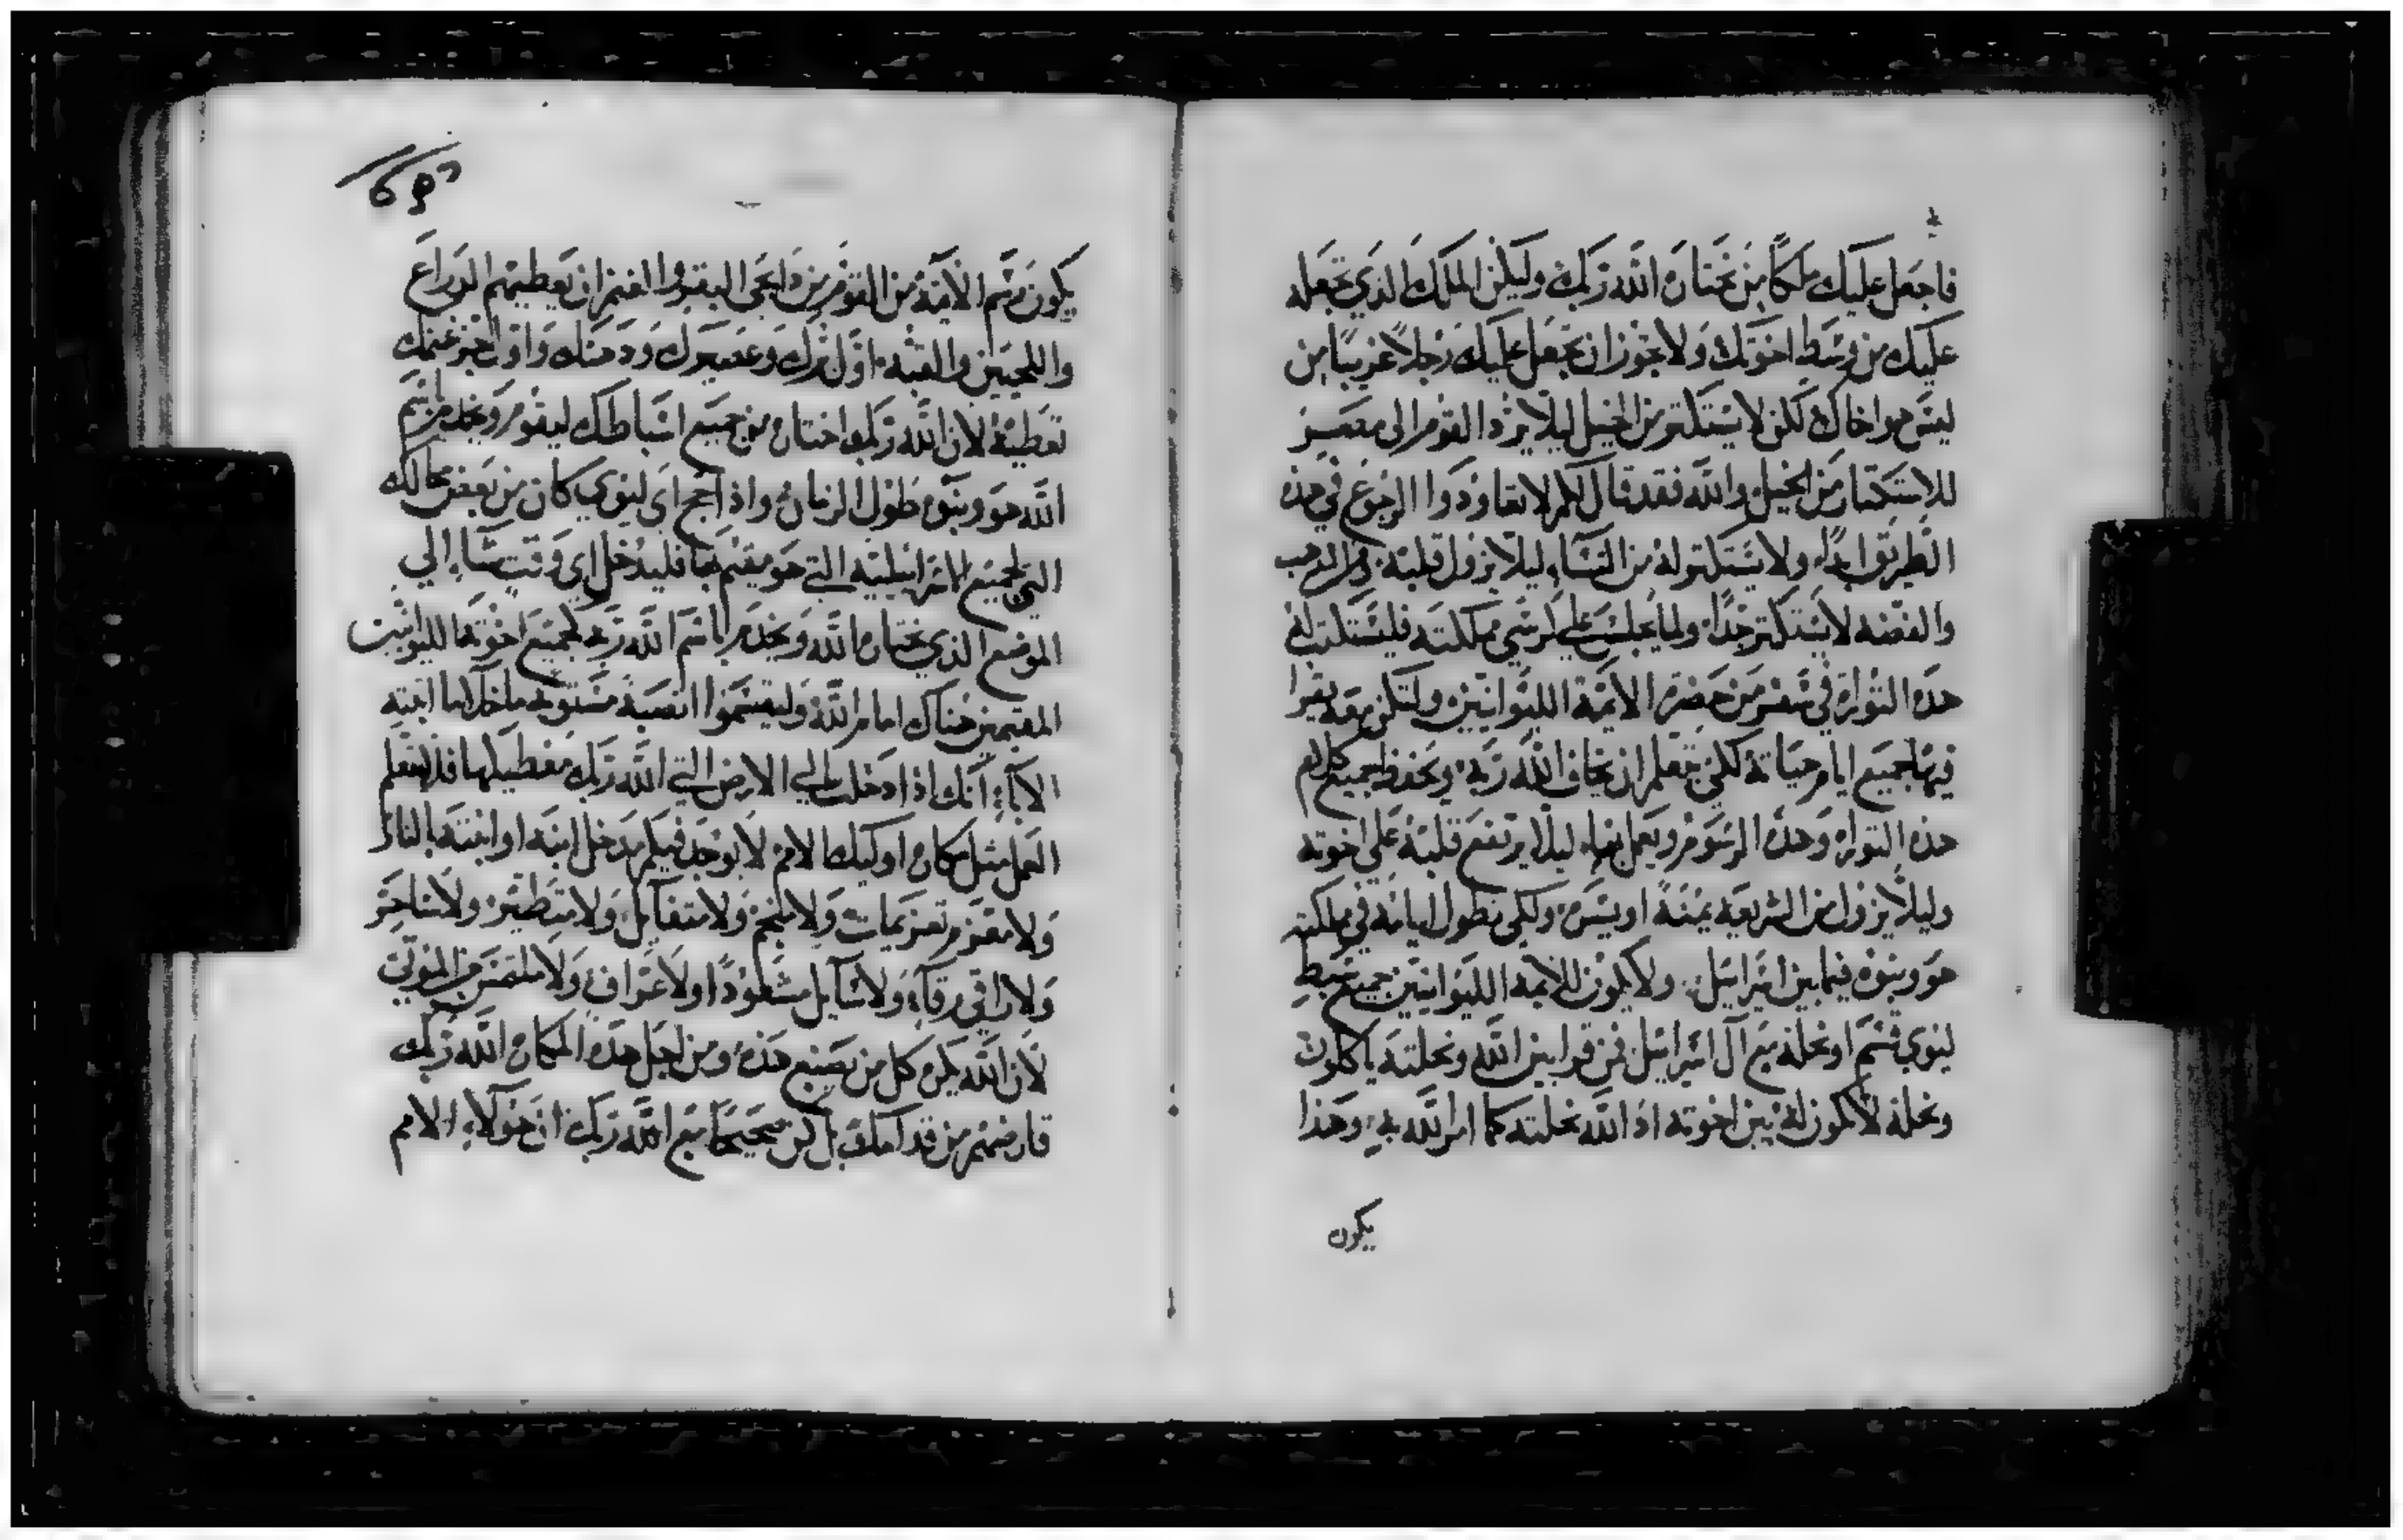 فاجعل عليك ملكا من يختاره الله ربك وليكن الملك الذي تجعله
عليك من وسط اخوتك ولا يجوز ان تجعل عليك رجلا غريبا من
ليس هو اخاك لكن لا يستكثر من الخيل ليلا يرد القوم الى مصر
للاستكثار من الخيل والله فقد قال لكم لا تعاودوا الرجوع في هذه
الطريق ابدا ولا يستكثر له من النساء ليلا يزول قلبه ومن الذهب
والفضه لا يستكثر جدا ولما يجلس على كرسي مملكته فليستكتب له
هذه التوراة في سفر من حضرة الايمة الليوانيين ولتكن معه يقرا
فيها جميع ايام حياته لكي يتعلم ان يخاف الله ربه ويحفظ جميع كلام
هذه التوراه وهذه الرسوم ويعمل بها ليلا يرتفع قلبه على اخوته
وليلا يزول من الشريعه يمنة او يسرة ولكي تطول ايامه في مملكته
هو وبنوه فيما بين اسرائيل ولا يكون للايمة الليوانيين جميع سبط
ليوي قسم او نحله مع آل اسرائيل فمن قرابين الله ونحلته ياكلون
ونحله لا تكون له بين اخوته اذ الله نحلته كما امر الله به وهذا
يكون
يكون رسم الايمة من القوم من ذابحي البقر والغنم ان يعطيهم الذراع
واللحيين والقبه اول برك وعصيرك ودهنك واول جز غنمك
تعطيه لان الله ربك اختاره من جميع اسباطك ليقوم ويخدم باسم
الله هو وبنوه طول الزمان واذا جا اي ليوي كان من بعض محالك
التي لجميع الاسرائيليه التي هو مقيم بها فليدخل اي وقت شاء الي
الموضع الذي يختاره الله ويخدم باسم الله ربه لجميع اخوته الليوانيين
المقيمين هناك امام الله وليقسموا انصبة مستويه ما خلا ما ابتيه
الاباء انك اذا دخلت الي الارض التي الله ربك معطيكها فلا تتعلم
العمل مثل مكاره اوليك الامم لا يوجد فيكم مدخل ابنه او ابنته بالنار
ولا معزم تعزيمات ولا منجم ولا متفايل ولا متطير ولا ساحر
ولا راقي رقاء ولا سايل مشعوذا او لا عراف ولا ملتمس من الموتى
لان الله يكره كل من يصنع هذه ومن اجل هذه المكاره الله ربك
قارضهم من قدامك بل كن صحيحا مع الله ربك ان هولاء الامم